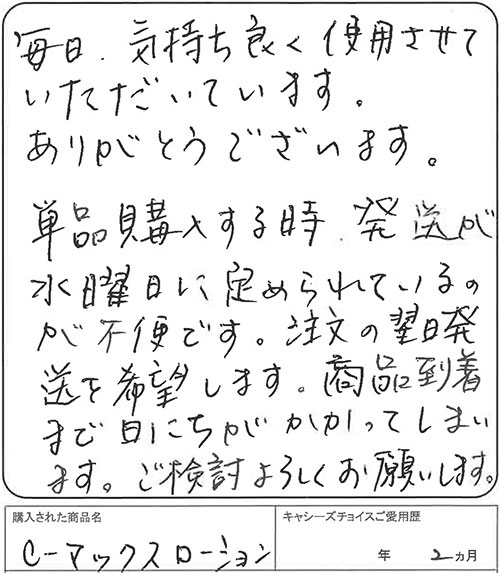 毎日、気持ち良く使用させて
いただいています。
ありがとうございます。
単品購入する時、発送が
水曜日に定められているの
が不便です。注文の翌日発
送を希望します。商品到着
まで日にちがかかってしまい
ます。ご検討よろしくお願いします。
購入された商品名
キャシーズチョイスご愛用歴
C-マックスローション
年 2ヵ月